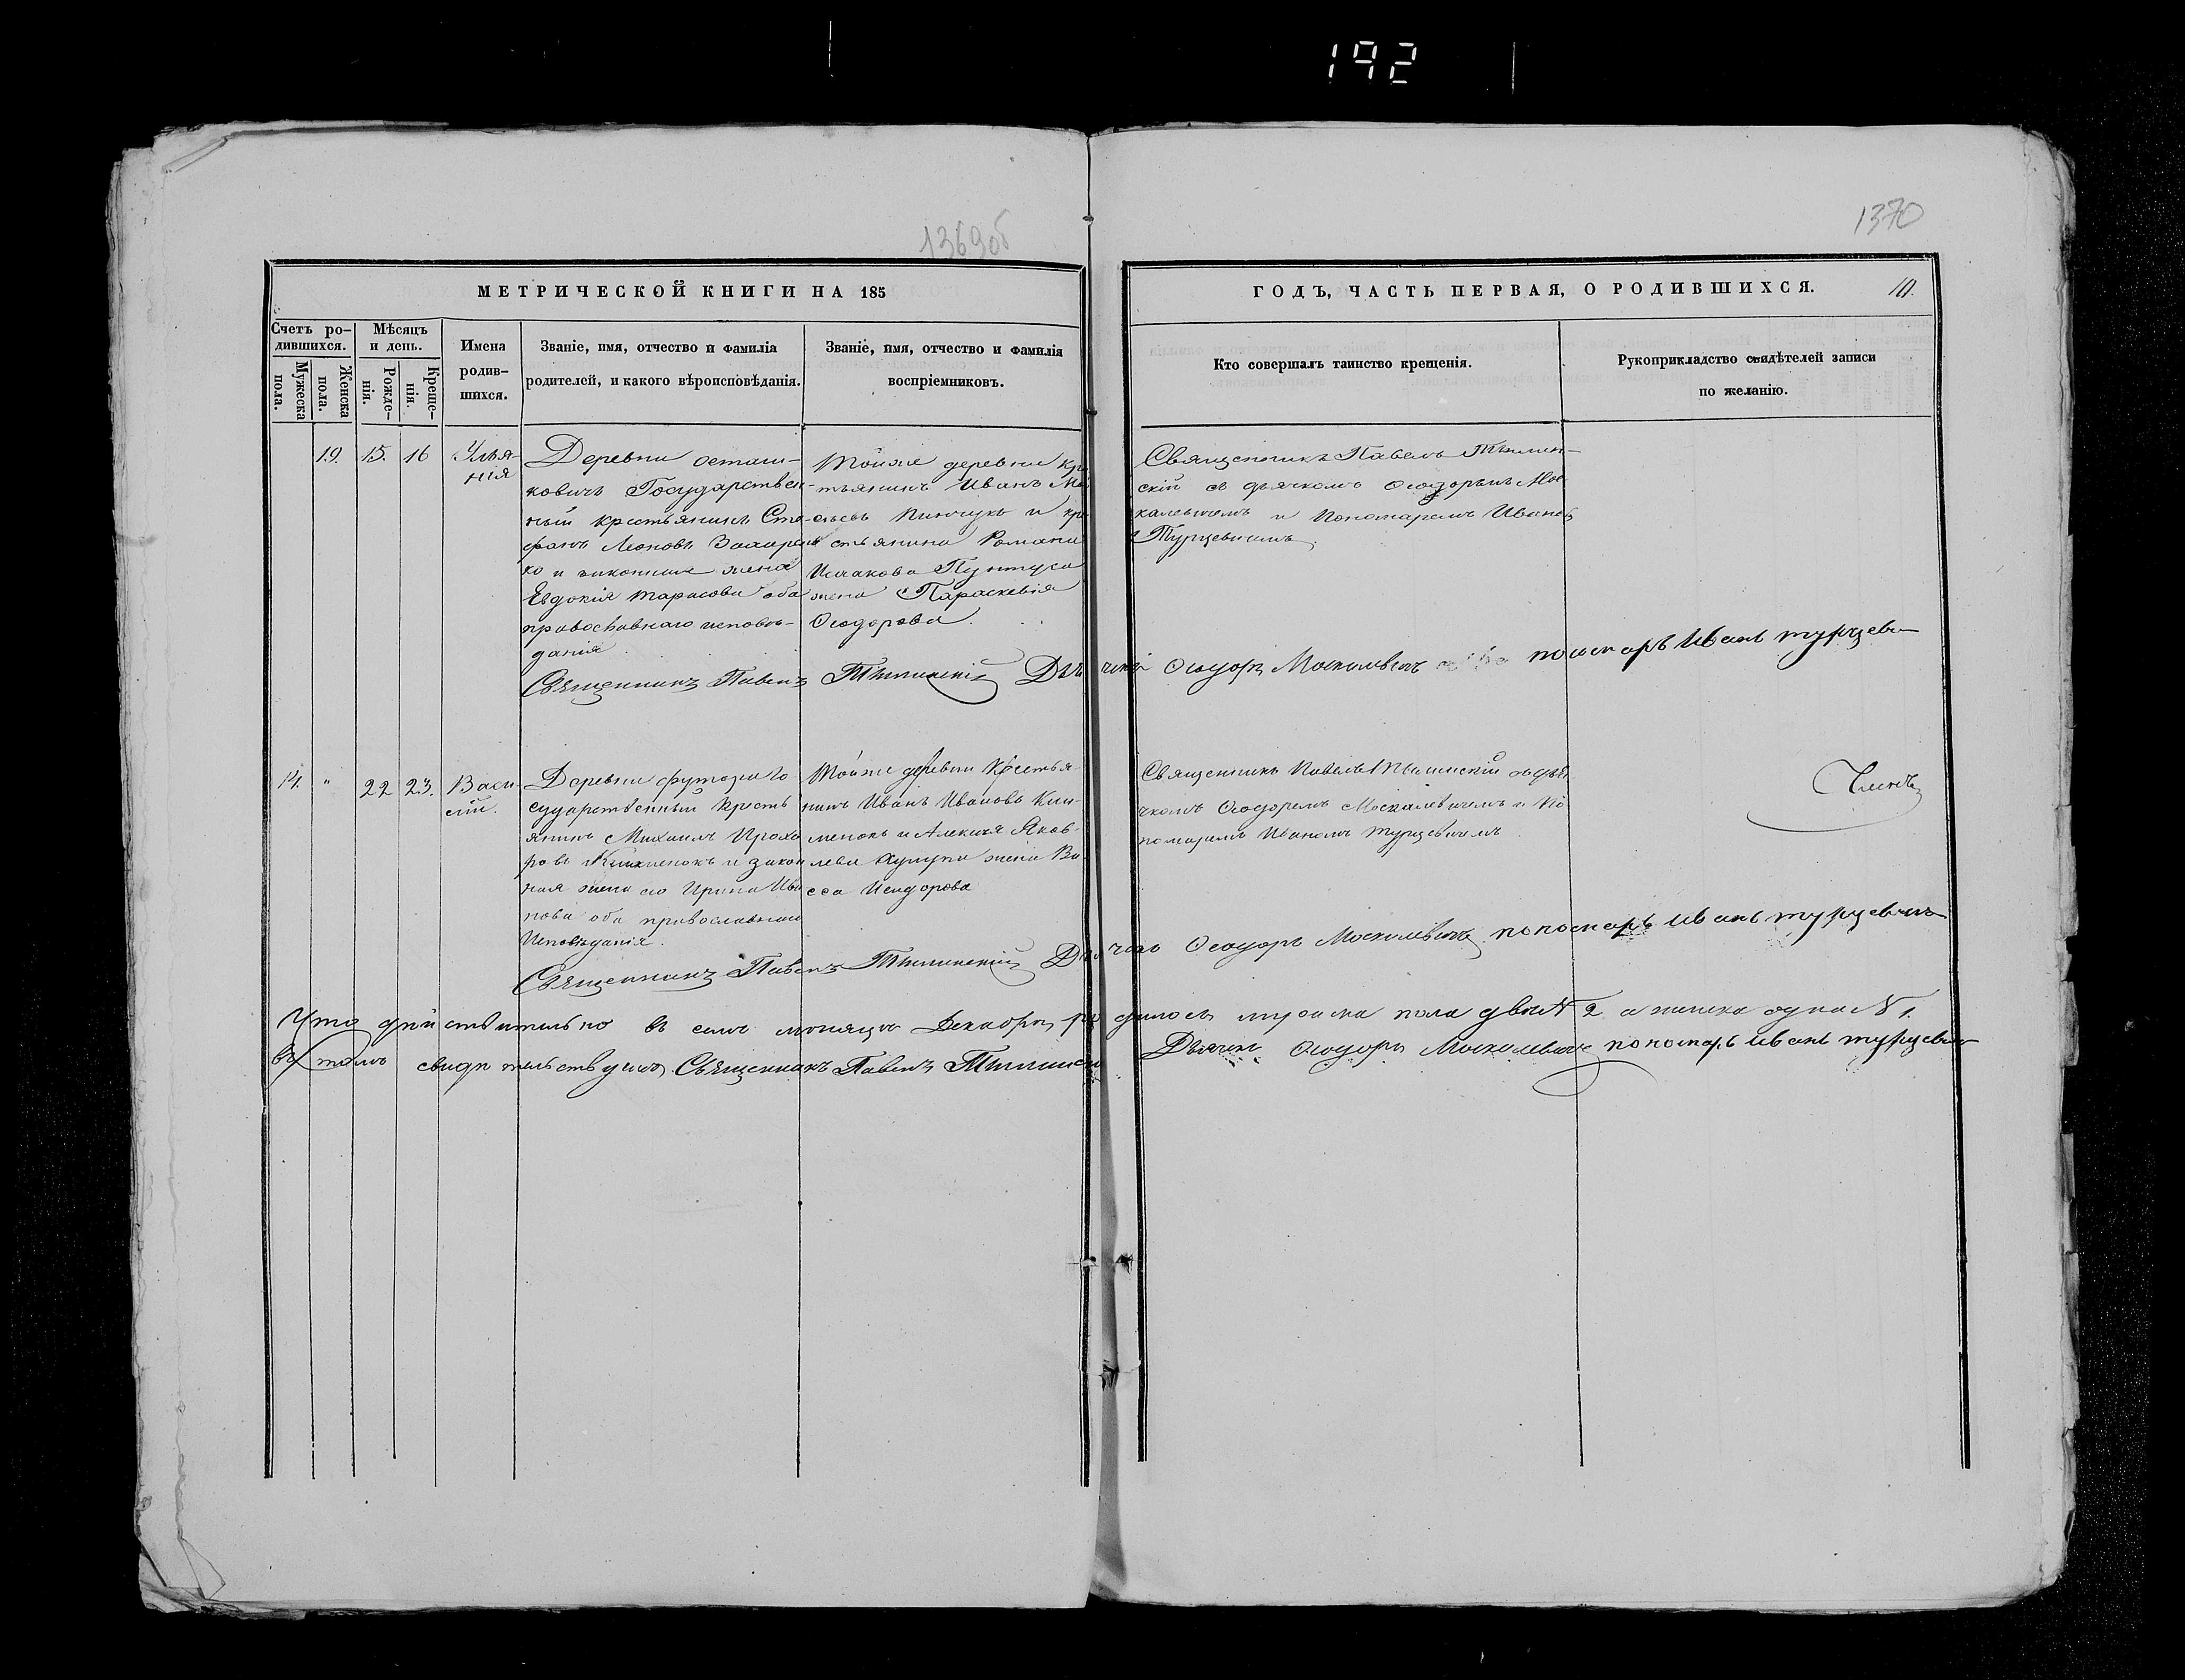 192
1369об
1370
МЕТРИЧЕСКОЙ КНИГИ НА 185
ГОДЪ, ЧАСТЬ ПЕРВАЯ, О РОДИВШИХСЯ.
10.
Счетъ ро-
дившихся.
Мужеска
пола.
Женска
пола.
Мѣсяцъ
и день.
Рожде-
нія.
Креще-
нія.
Имена
родив-
шихся.
Званіе, имя, отчество и фамилія
родителей, и какого вѣроисповѣданія.
Званіе, имя, отчество и фамилія
воспріемниковъ.
Кто совершалъ таинство крещенія.
Рукоприкладство свидѣтелей записи
по желанію.
19.
15.
16
Улья-
нія
Деревни осташ-
ковичъ Государствен-
ный крестьянинъ Сте-
фанъ Леоновъ Захарен
ко и законная жена
Евдокія Тарасова оба
православнаго исповѣ-
данія
Тойже деревни кре
тьянинъ Иванъ
Пинчукъ и кре
стьянина Романа
Исаакова Пунтуса
жена Параскевія
Ѳеодорова.
Священникъ Павелъ Тылин-
скій съ дьячкомъ Ѳеодоромъ Мос
калевичемъ и Пономаремъ Иваномъ
Турцевичемъ.
Священникъ Павелъ Тылинскій Дьячекъ Ѳеодоръ Москалевичъ пономарь Иванъ турцевичъ
14.
"
22
23.
Васи-
лій.
Деревни футора Го
сударственный кресть
янинъ Михаилъ Прохо
ровъ Клименокъ и закон
ная жена его Ирина Ива
нова оба православнаго
Исповѣданія.
Тойже деревни Крестья-
нинъ Иванъ Ивановъ Кли-
менокъ и Алексѣя Яков-
лева жена Ва-
сса Исидорова
Священникъ Павелъ Тылинскій съ дья
чкомъ Ѳеодоромъ Москалевичемъ и По
номаремъ Иваномъ Турцевичемъ.
Членъ
Священникъ Павелъ Тылинскій Дьячекъ Ѳеодоръ Москалевичъ пономарь Иванъ турцевичъ
Что дѣйствительно въ семъ мѣсяцѣ Декабрѣ родилось мужска пола двое № 2 а женска одна № 1.
въ томъ свидетельствуемъ Священникъ Павелъ Тылинскій Дьячекъ Ѳеодоръ Москалевичъ пономарь Иванъ турцевичъ